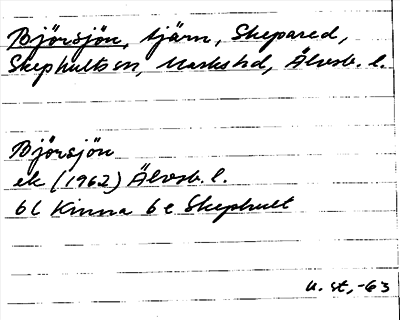 Björsjön, tjärn, Skepared,
Skephults sn, Marks hd, Älvsb. l.
Björsjön
ek (1962) Älvsb. l.
6c Kinna 6e Skephult
u. st, -63